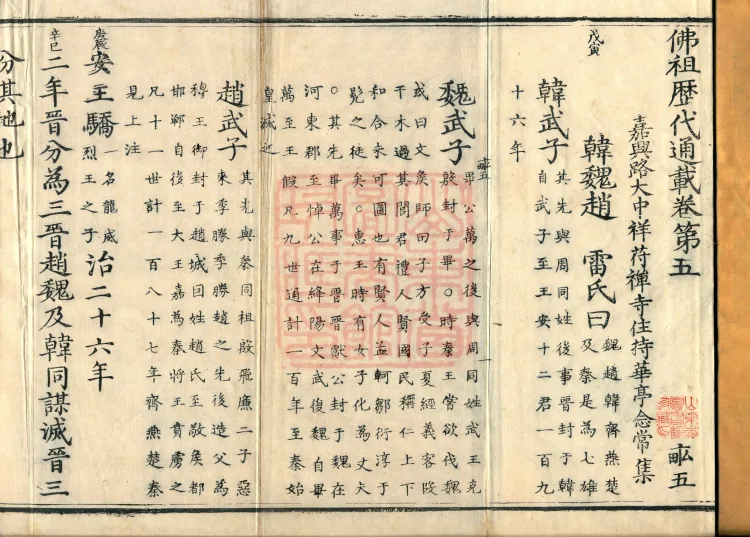 佛祖歷代通載卷第五 畞五
嘉興路大中祥符禪寺住持華亭念常集
戊寅
韓魏趙 雷氏曰 魏趙韓齊燕楚
及秦是為七雄
韓武子 其先與周同姓後事晉封于韓
自武子至王安十二君一百九
十六年
魏武子 畢公萬之後與周同姓武王克
殷封于畢○時秦王嘗欲伐魏
或曰文矦師田子方受子夏經義客叚
干木過其閭君禮人賢國民稱仁上下
和合未可圖也有賢人孟軻鄒衍淳于
髡之徒矣○惠王時有女子化為丈夫
○其先畢萬事于晉晉獻公封于魏在
河東郡至悼公在絳陽文武復魏自畢
萬至王假凡九世通計一百年至秦始
皇滅之
趙武子 其先與秦同祖殷飛廉二子惡
來季勝季勝趙之先後造父為
穆王御封于趙城因姓趙氏至敬矦都
邯鄲自後至大王嘉為秦將王賁虜之
凡十一世計一百八十七年齊燕楚秦
見上注
庚辰 安王驕 一名龍威
烈王之子 治二十六年
辛巳 二年晉分為三晉趙魏及韓同謀滅晉三
分其地也